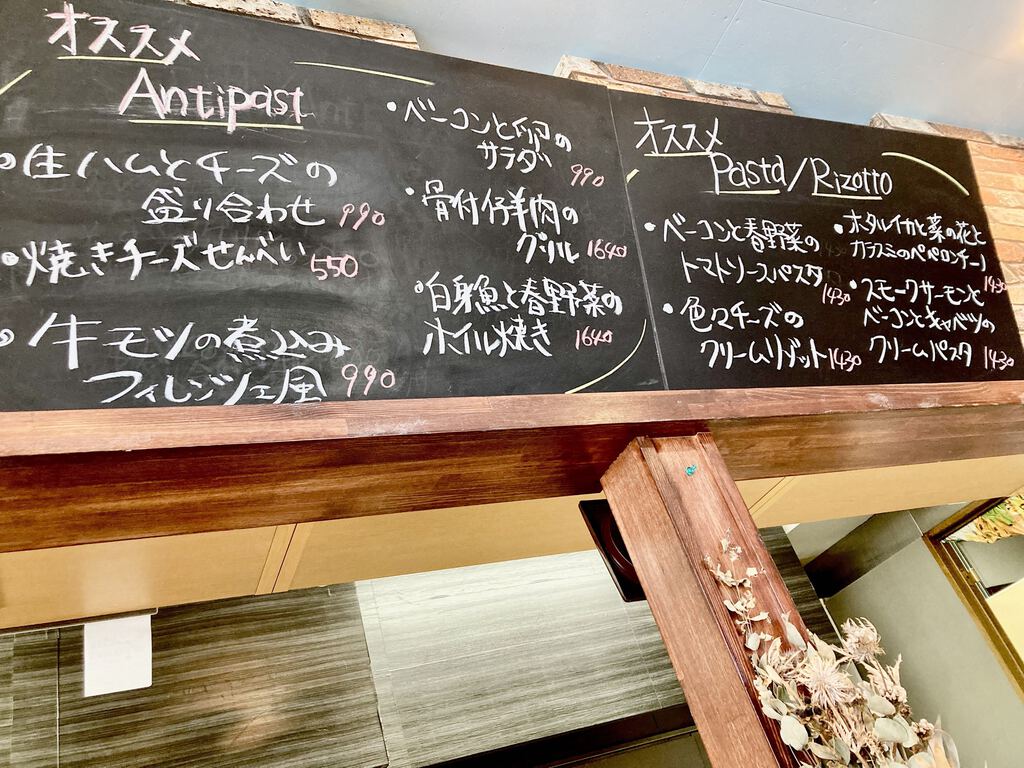 オススメ
Antipast
・生ハムとチーズの
盛り合わせ 990
・焼きチーズせんべい 550
・牛モツの煮込み
フィレンツェ風 990
・ベーコンと卵の
サラダ 990
・骨付仔羊肉の
グリル 1640
・白身魚と春野菜の
ホイル焼き 1640
オススメ
Pasta/Rizotto
・ベーコンと春野菜の
トマトソースパスタ 1430
・色々チーズの
クリームリゾット 1430
・ホタルイカと菜の花と
カラスミのペペロンチーノ 1430
・スモークサーモンと
ベーコンとキャベツの
クリームパスタ 1430